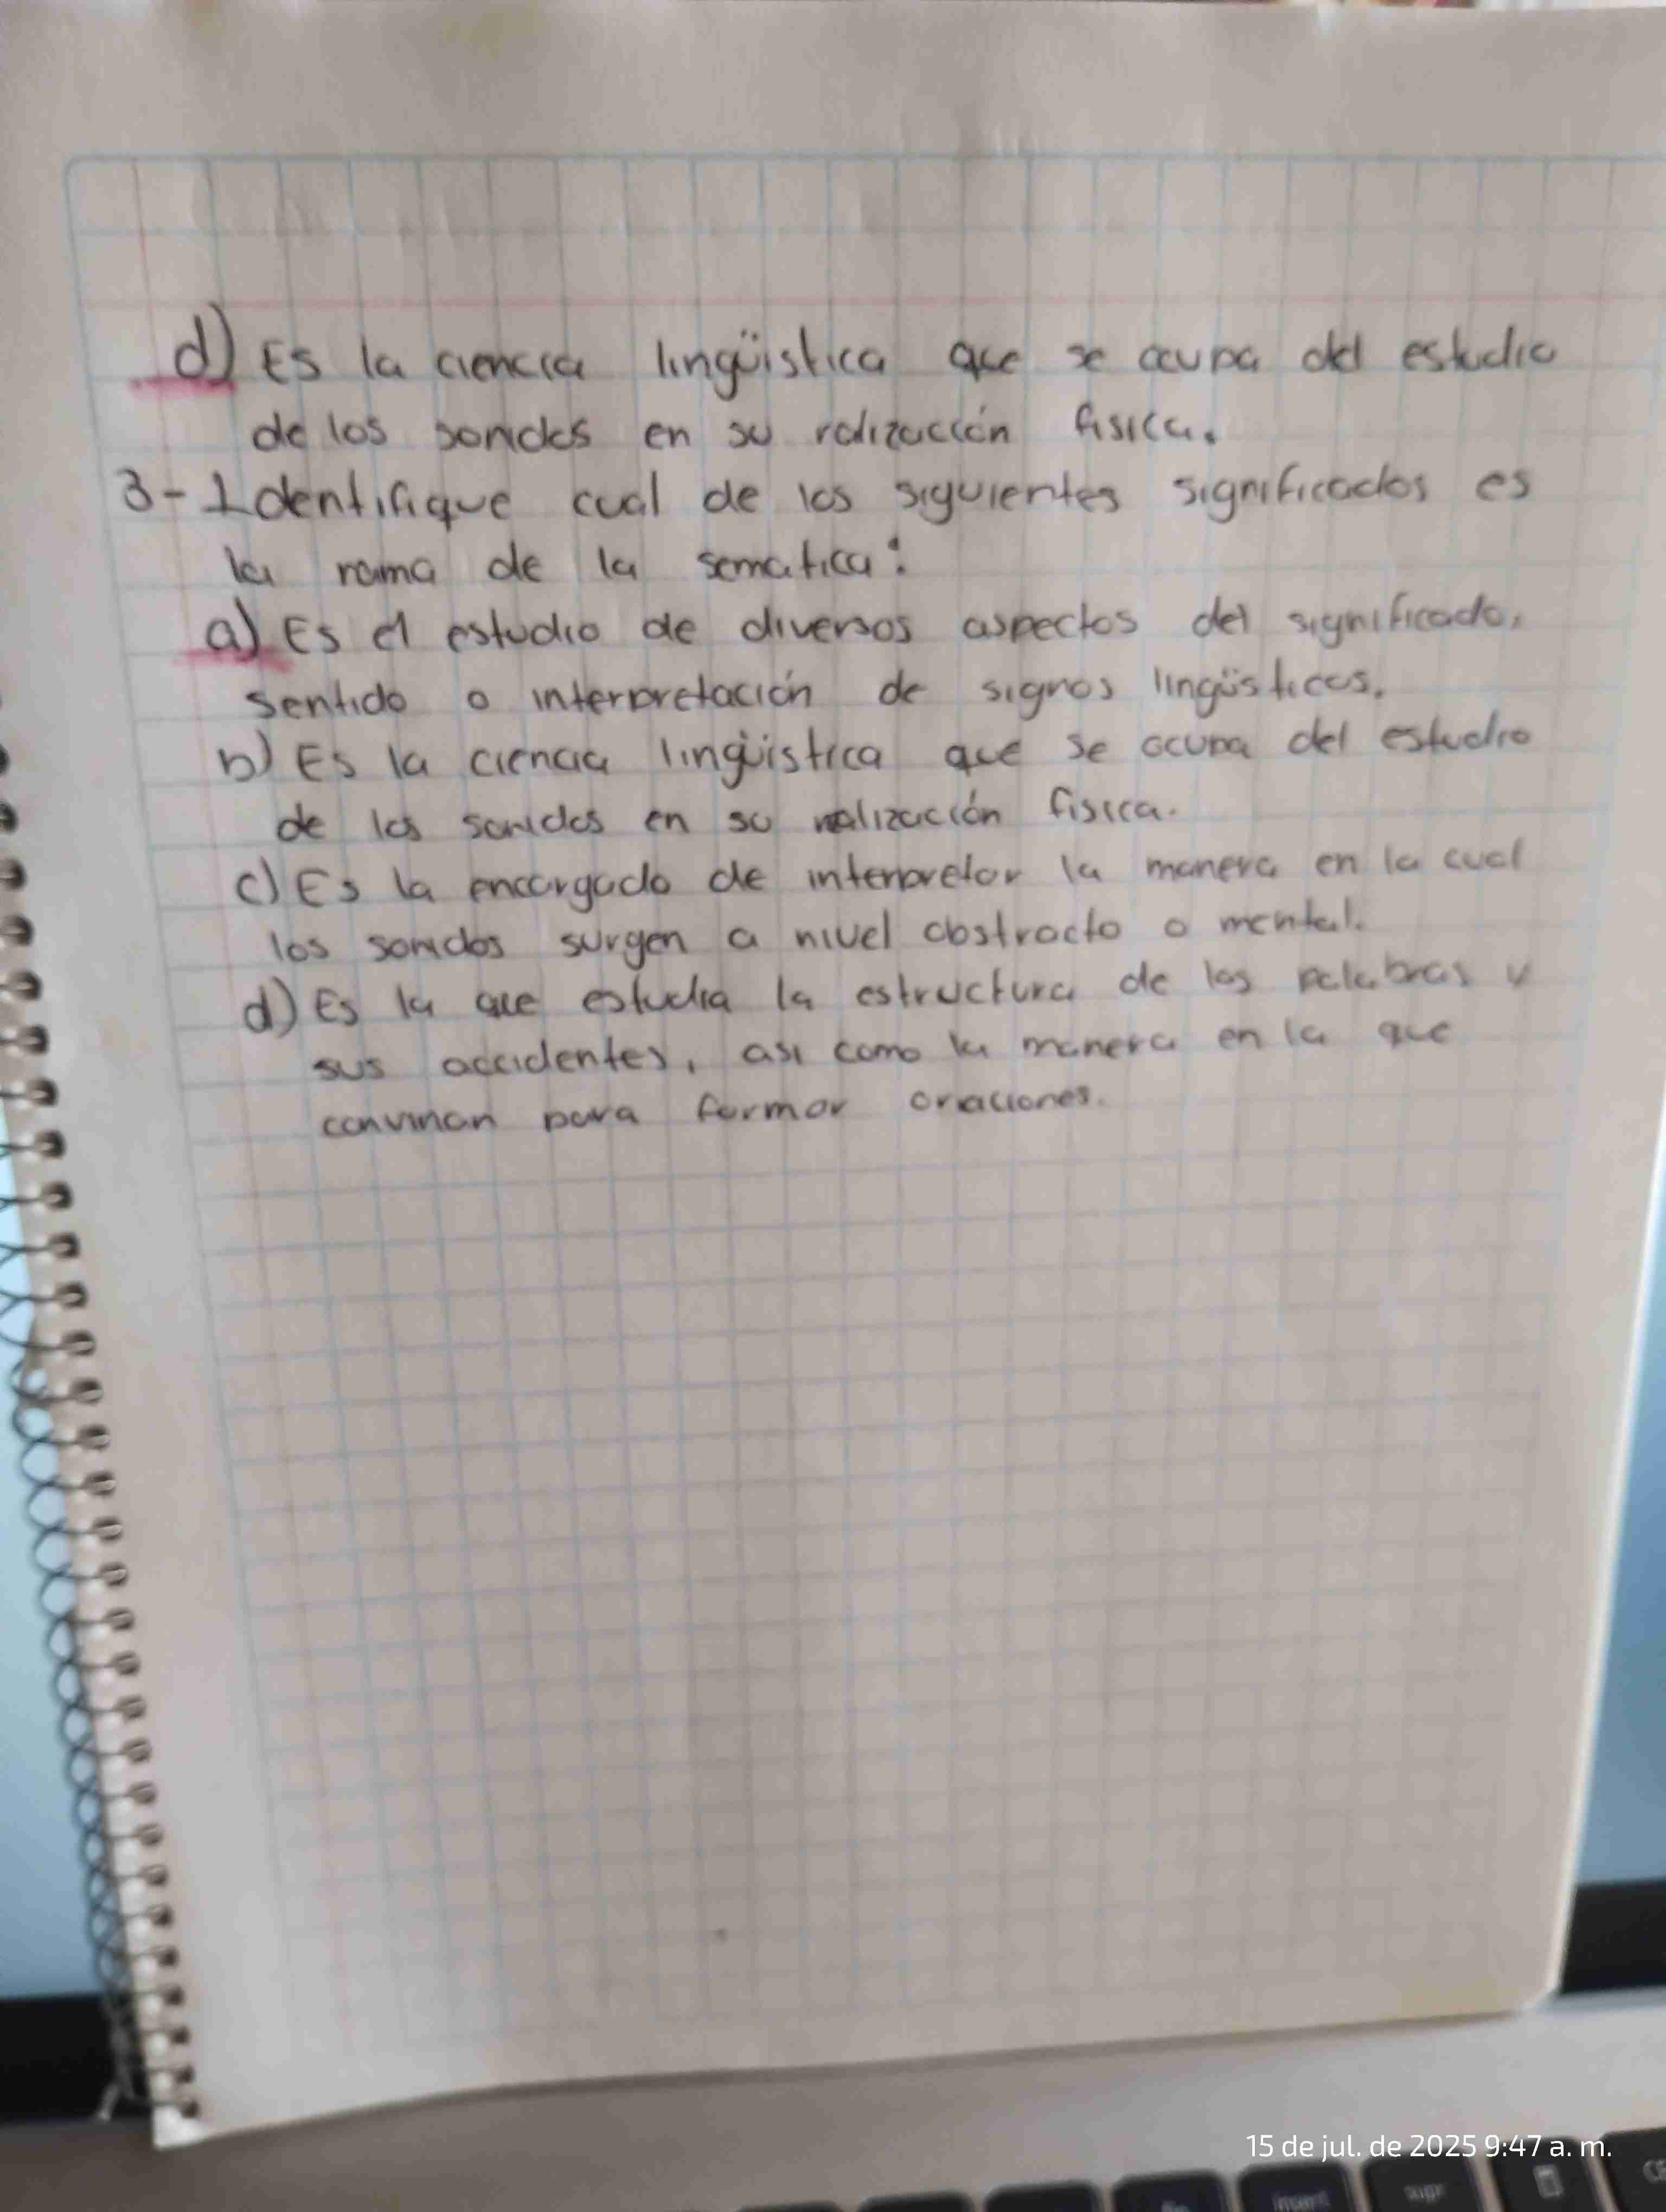 d) Es la ciencia lingüistica que se ocupa del estudio
de los sonidos en su ralización fisica.
3-Identifique cual de los siguientes significados es
la rama de la sematica:
a) Es el estudio de diversos aspectos del significado,
sentido o interpretación de signos lingüsticos.
b) Es la ciencia lingüistica que se ocupa del estudio
de los sonidos en su realización fisica.
c) Es la encargada de interpretar la manera en la cual
los sonidos surgen a nivel abstracto o mental.
d) Es la que estudia la estructura de las palabras y
sus accidentes, asi como la manera en la que
convinan para formar oraciones.
15 de jul. de 2025 9:47 a. m.
insert
supr